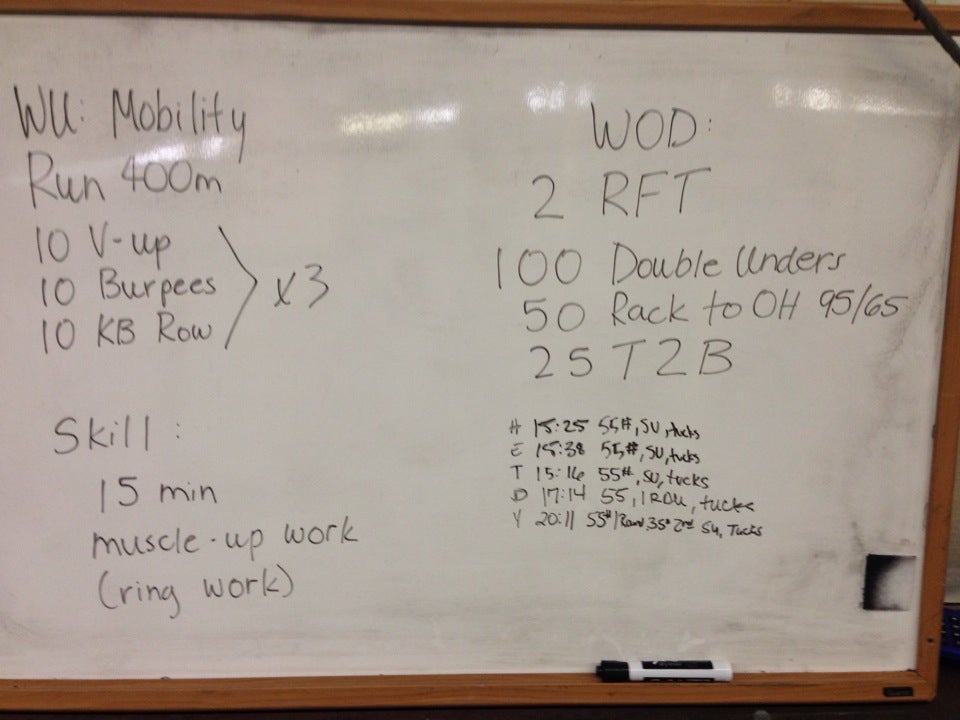 WU: Mobility
Run 400m
10 V-up
10 Burpees
10 KB Row
x3
Skill:
15 min
muscle-up work
(ring work)
WOD:
2 RFT
100 Double Unders
50 Rack to OH 95/65
25 T2B
H 15:25 55#, SU, tucks
E 15:38 55#, SU, tucks
T 15:16 55#, SU, tucks
D 17:14 55, 1 RDU, tucks
Y 20:11 55# 1 Round 35# 2nd SU, Tucks